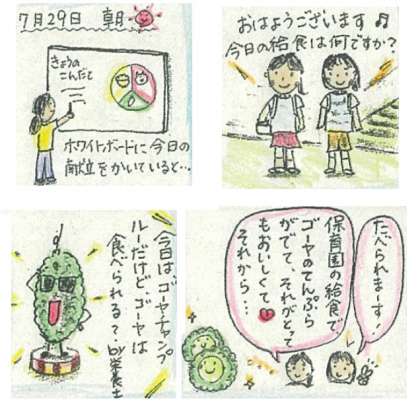 7月29日 朝
きょうの
こんだて
ホワイトボードに今日の
献立をかいていると…
おはようございます♫
今日の給食は何ですか?
今日は、ゴーヤチャンプ
ルーだけど、ゴーヤは
食べられる?by栄養士
たべられまーす!
保育園の給食で
ゴーヤのてんぷら
がでて、それがとって
もおいしくて♥
それから…